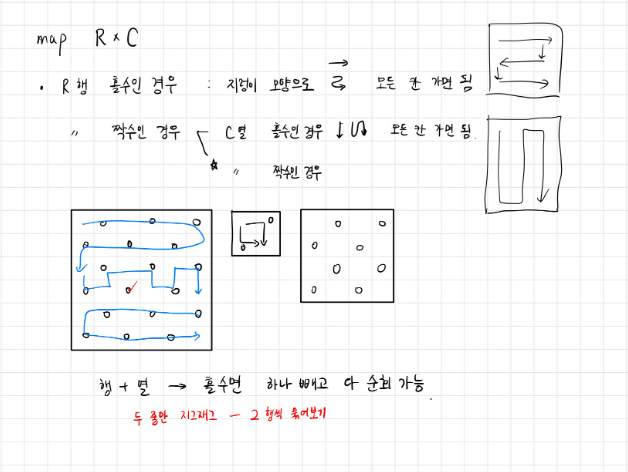 map R × C
• R행 홀수인 경우 : 지렁이 모양으로 모든 칸 가면 됨
〃 짝수인 경우 C열 홀수인 경우 모든 칸 가면 됨.
☆ 〃 짝수인 경우
행 + 열 → 홀수면 하나 빼고 다 순회 가능.
두 줄만 지그재그 - 2행씩 묶어보기